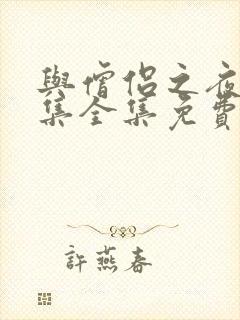 與僧侶之夜
集全集免費
許燕春